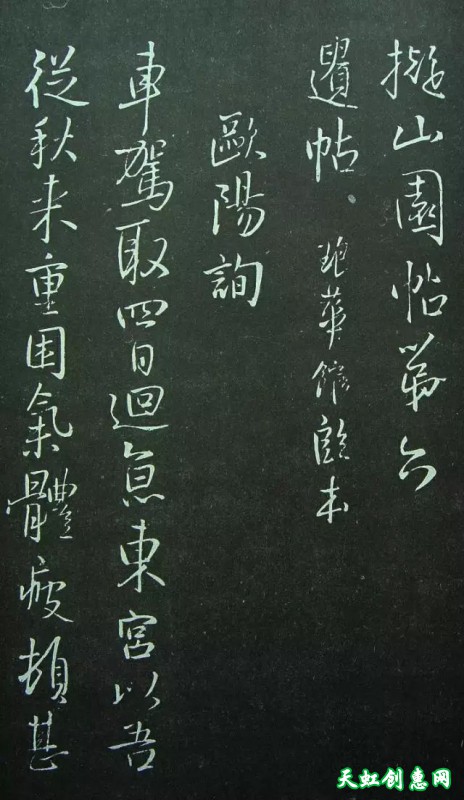 擬山園帖第六
選帖 琅華館臨本
歐陽詢
車駕取四日迴京東宮以吾
從秋来重困氣體疲頓甚
天虹创惠网